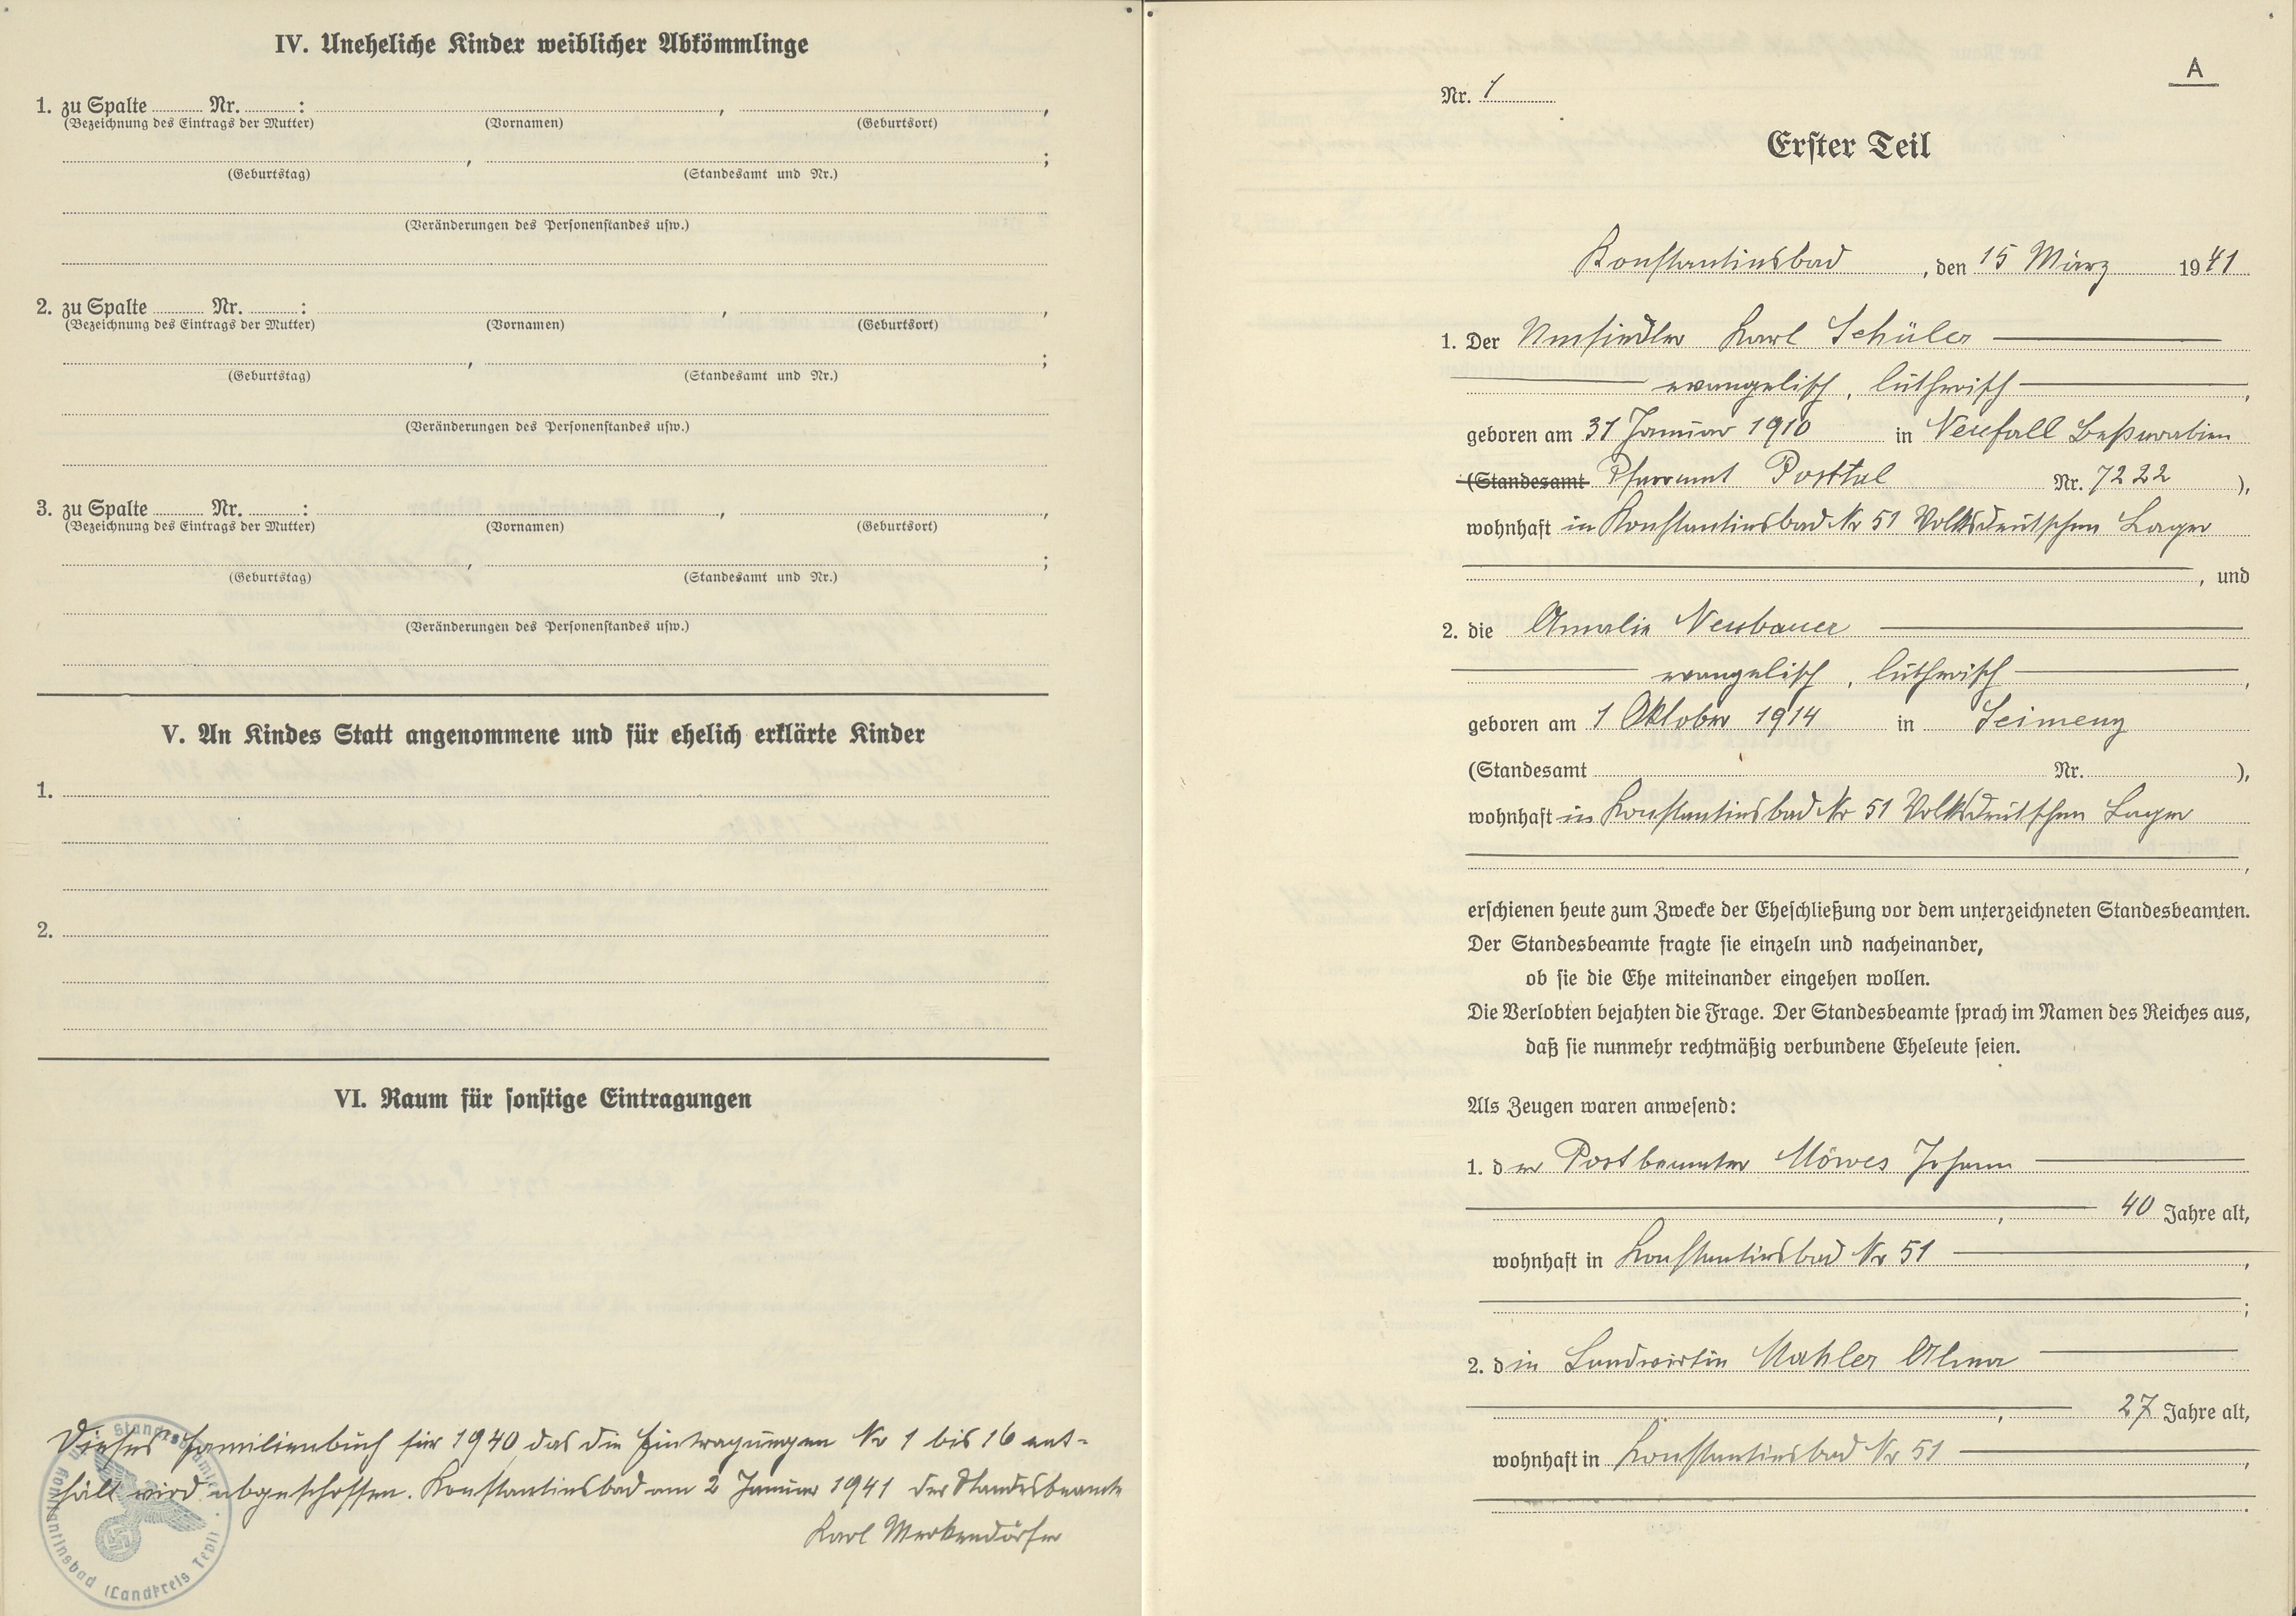 IV. Uneheliche Kinder weiblicher Abkömmlinge
1. zu Spalte Nr. : , ,
(Bezeichnung des Eintrags der Mutter) (Vornamen) (Geburtsort)
, ;
(Geburtstag) (Standesamt und Nr.)
(Veränderungen des Personenstandes usw.)
2. zu Spalte Nr. : , ,
(Bezeichnung des Eintrags der Mutter) (Vornamen) (Geburtsort)
, ;
(Geburtstag) (Standesamt und Nr.)
(Veränderungen des Personenstandes usw.)
3. zu Spalte Nr. : , ,
(Bezeichnung des Eintrags der Mutter) (Vornamen) (Geburtsort)
, ;
(Geburtstag) (Standesamt und Nr.)
(Veränderungen des Personenstandes usw.)
V. An Kindes Statt angenommene und für ehelich erklärte Kinder
1.
2.
VI. Raum für sonstige Eintragungen
Dieses Familienbuch für 1940, das die Eintragungen Nr 1 bis 16 ent-
hält wird abgeschossen. Konstantinsbad am 2 Januar 1941 der Standesbeamte
Karl Merkendörfer
Standesbeamte in Konstantinsbad (Landkreis Tepl)
A
Nr. 1
Erster Teil
Konstantinsbad, den 15 März 1941
1. Der Umsiedler Karl Schüler
evangelisch, lutherisch,
geboren am 31 Januar 1910 in Neufall Beßarabien
(Standesamt Pfarramt Posttal Nr. 7222),
wohnhaft in Konstantinsbad Nr 51 Volksdeutschen Lager
, und
2. die Amalie Neubauer
evangelisch, lutherisch,
geboren am 1 Oktober 1914 in Seimeny
(Standesamt Nr. ),
wohnhaft in Konstantinsbad Nr 51 Volksdeutschen Lager
,
erschienen heute zum Zwecke der Eheschließung vor dem unterzeichneten Standesbeamten.
Der Standesbeamte fragte sie einzeln und nacheinander,
ob sie die Ehe miteinander eingehen wollen.
Die Verlobten bejahten die Frage. Der Standesbeamte sprach im Namen des Reiches aus,
daß sie nunmehr rechtmäßig verbundene Eheleute seien.
Als Zeugen waren anwesend:
1. der Postbeamter Möwes Johann
, 40 Jahre alt,
wohnhaft in Konstantinsbad Nr 51,
;
2. die Landwirtin Mahler Alma
, 27 Jahre alt,
wohnhaft in Konstantinsbad Nr 51,
.